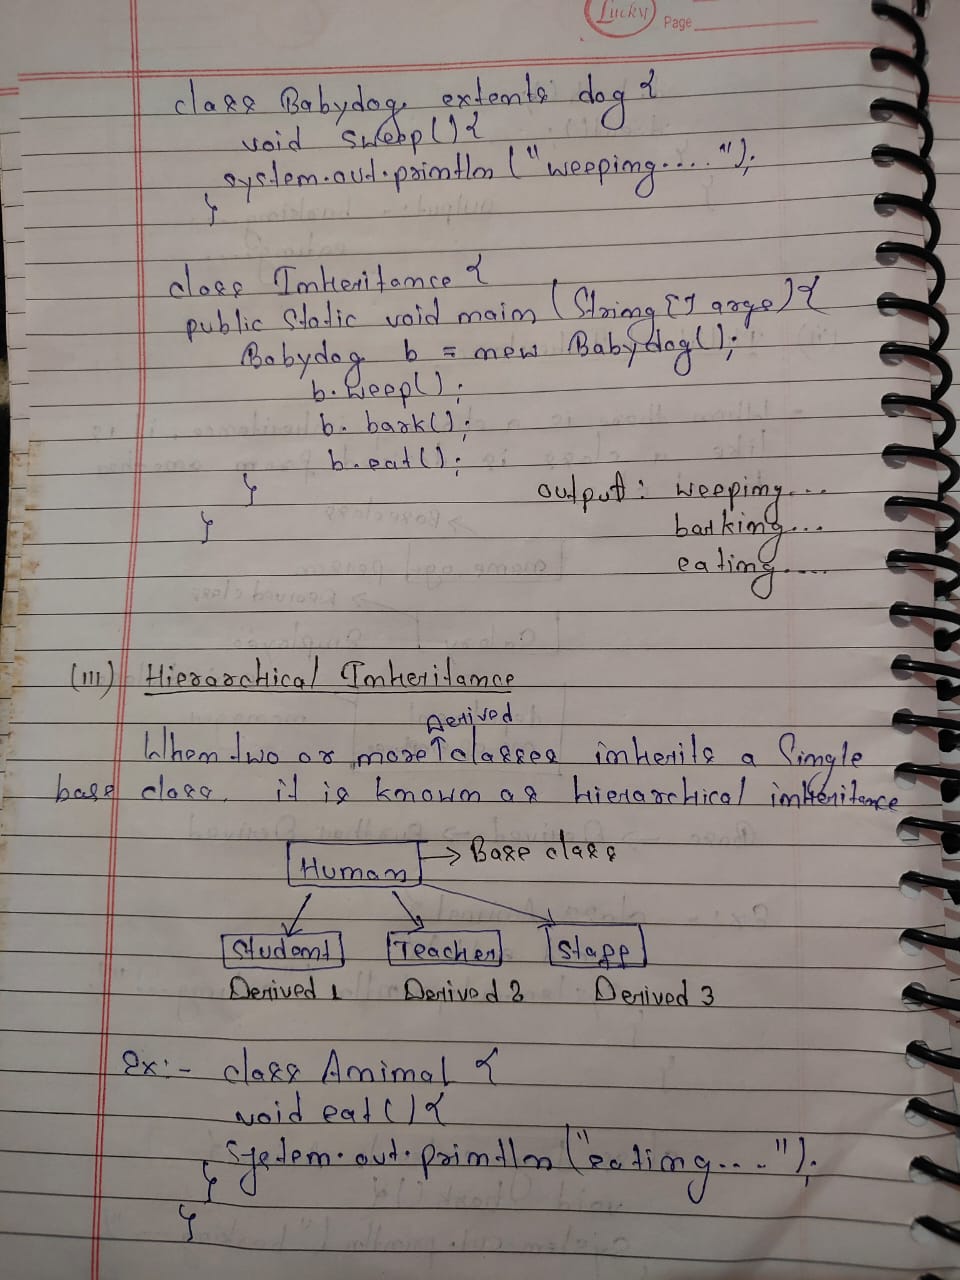 Lucky
Page
class Babydog extents dog {
void sweep() {
system.out.println ("weeping....");
}
class Inheritance {
public Static void main (String [] args) {
Babydog b = new Babydog();
b.weep();
b. bark();
b.eat();
}
output: weeping...
}
barking...
eating....
(iii) Hierarchical Inheritance
Derived
When two or more ↑ classes inherits a Single
base class, it is known as hierarchical inheritence
Human → Base class
Student Teacher Staff
Derived 1 Derived 2 Derived 3
Ex:- class Animal {
void eat() {
System.out.println ("eating....");
}
}